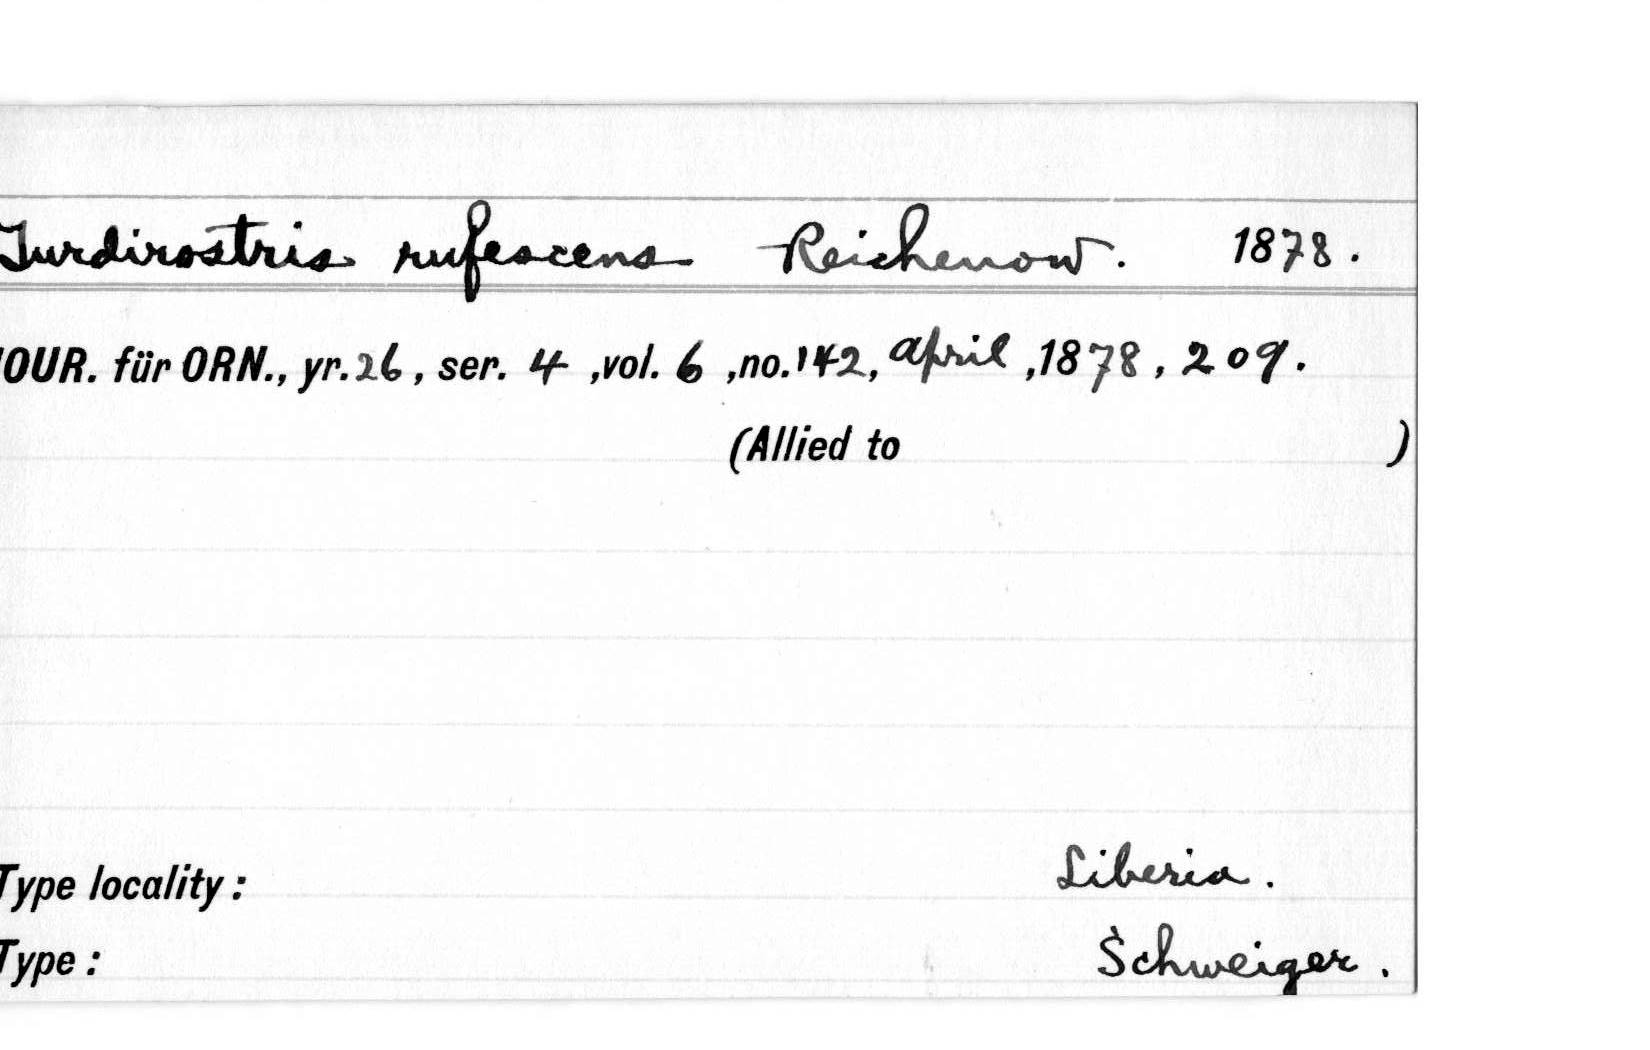 Turdirostris rufescens Reichenow. 1878.
JOUR. für ORN., yr. 26, ser. 4, vol. 6, no. 142, april, 1878, 209.
(Allied to )
Type locality: Liberia.
Type: Schweiger.